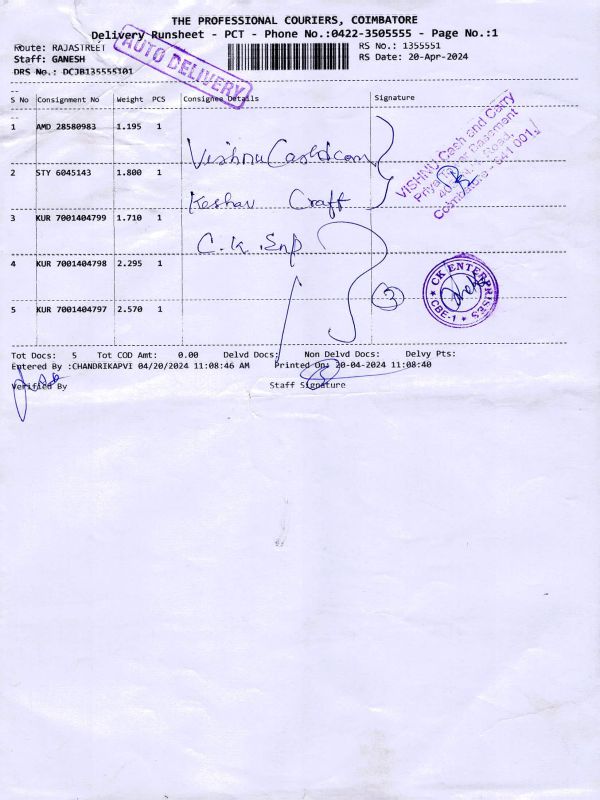 THE PROFESSIONAL COURIERS, COIMBATORE
Delivery Runsheet - PCT - Phone No.:0422-3505555 - Page No.:1
Route: RAJASTREET
RS No.: 1355551
Staff: GANESH
RS Date: 20-Apr-2024
DRS No.: DCJB135555101
AUTO DELIVERY
S No Consignment No Weight PCS Consignee Details Signature
1 AMD 28580983 1.195 1
Vishnu
2 STY 6045143 1.800 1
Keshav Craft
3 KUR 7001404799 1.710 1
C.K. Enp
4 KUR 7001404798 2.295 1
3
5 KUR 7001404797 2.570 1
VISHNU Cash and Carry
Basement
Road,
Coimbatore - 641 001.
CK ENTERPRISES
CBE-1
Tot Docs: 5 Tot COD Amt: 0.00 Delvd Docs: Non Delvd Docs: Delvy Pts:
Entered By :CHANDRIKAPVI 04/20/2024 11:08:46 AM Printed On: 20-04-2024 11:08:40
Verified By Staff Signature